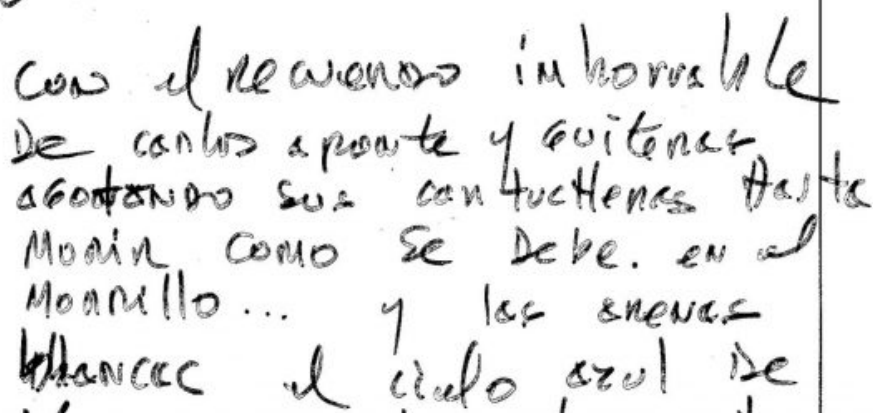 con el recuerdo imborrable
De carlos aponte y guiteras
AGOTANDO sus cartucheras Hasta
Morir como se Debe. en el
Morrillo... y las arenas
blancas el cielo azul De